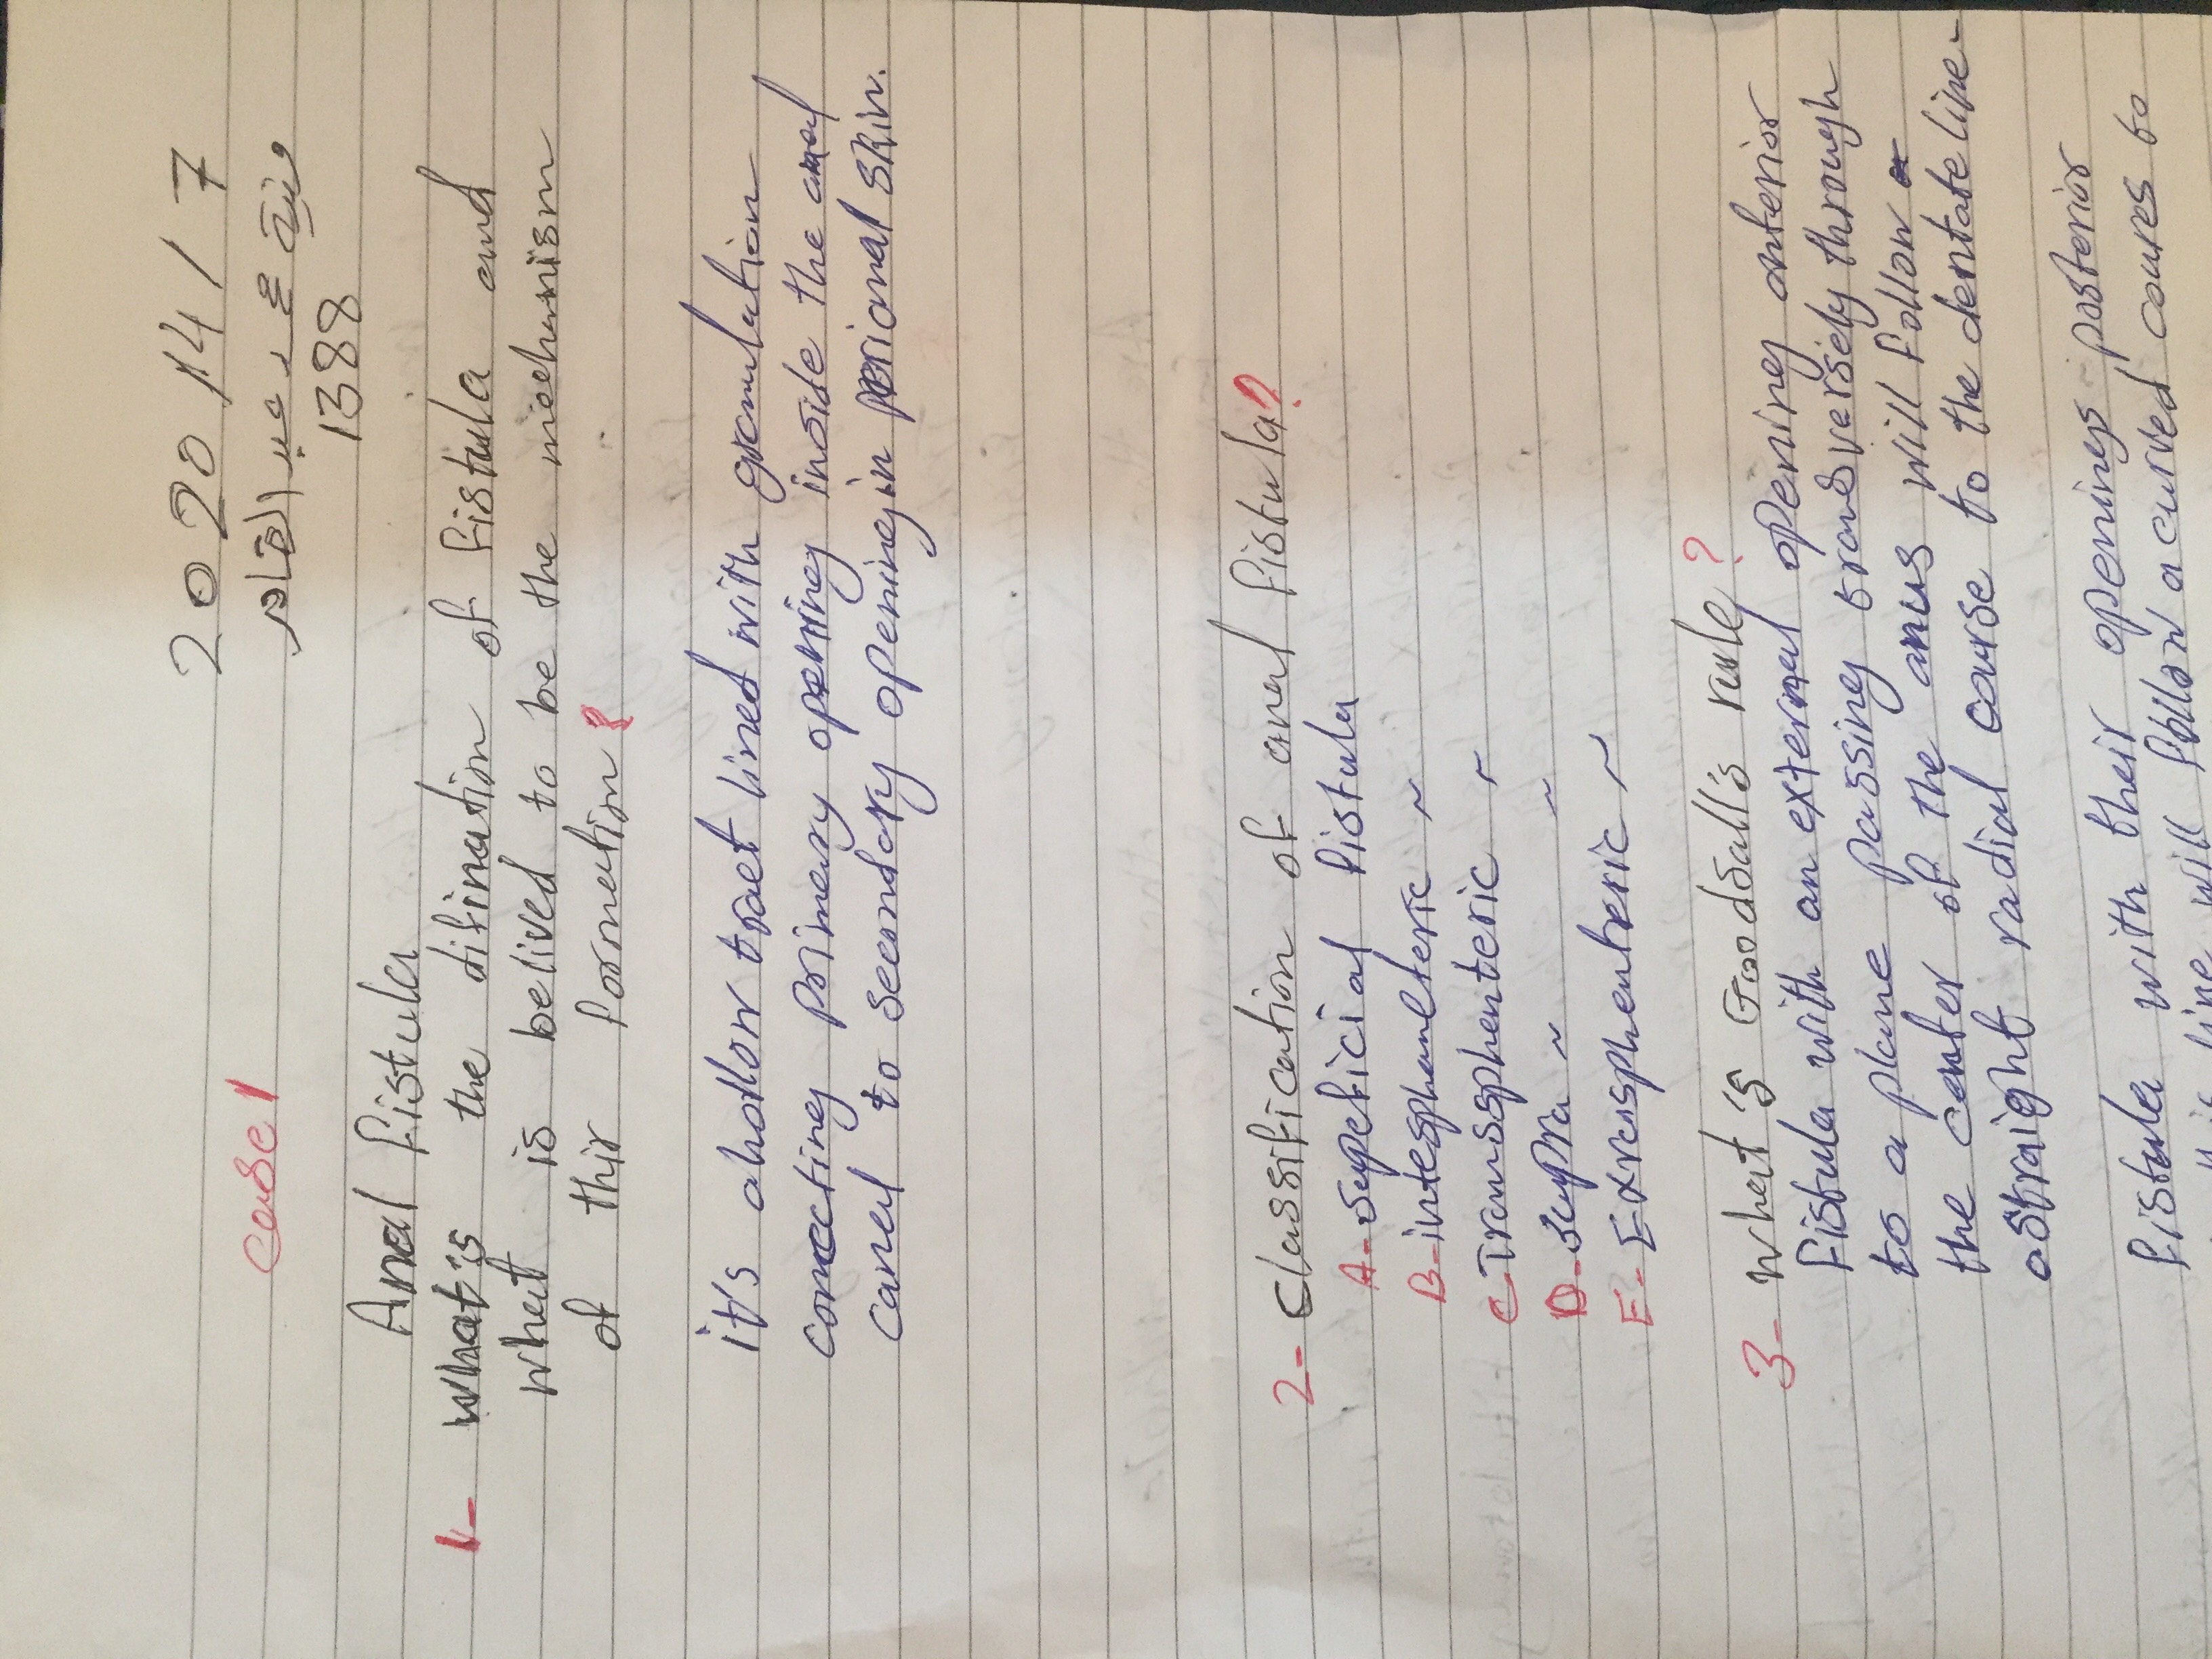 2020 14/7
1388
Case 1
Anal fistula
1- what's the difination of fistula and
what is belived to be the mechanism
of thir formation?
it's a hollow tract lined with granulation
connecting primery opening inside the anal
canel to secondary opening in perional skin.
2- Classification of anal fistula?
A- supeficial fistula
B- intesphenteric ~
C- Transsphenteric ~
D- supra ~ ~
E- Extrasphenteric ~
3- what's Goodsall's rule?
Fistula with an external opening anterior
to a plane passing transversely through
the center of the anus will follow
a straight radial course to the dentate line
fistula with their openings posterior
line will follow a curved coures to